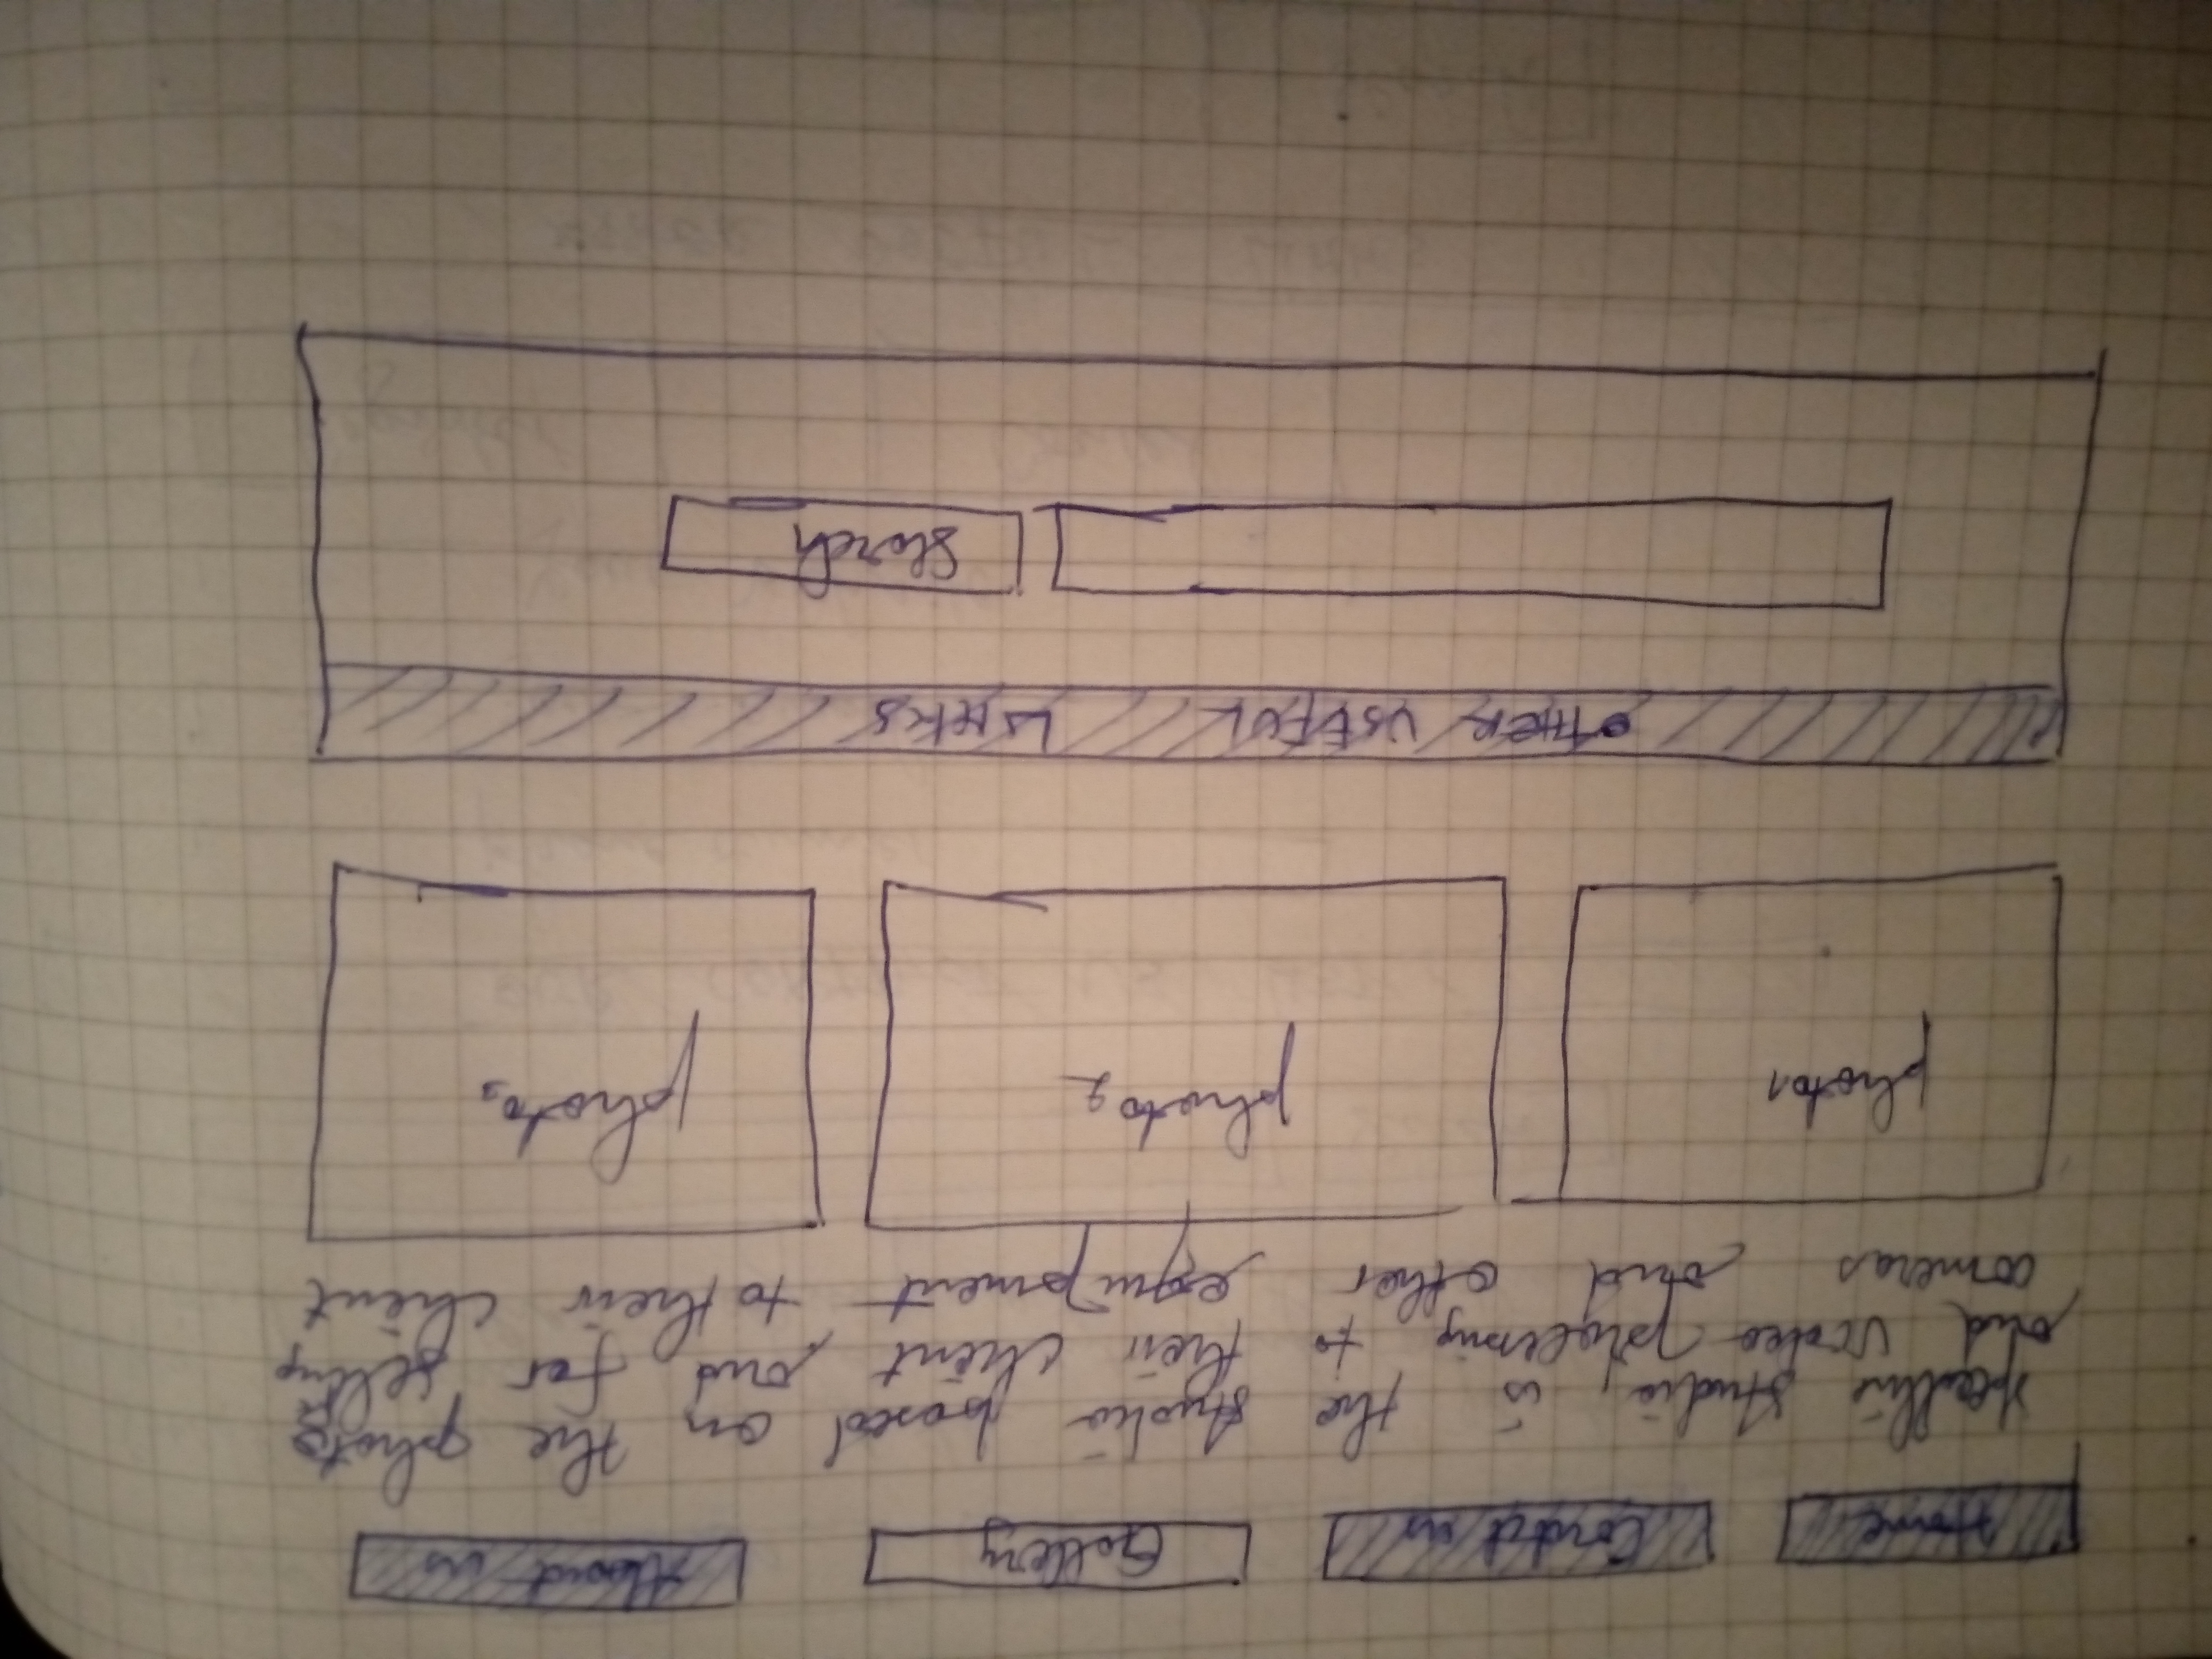 Home Contact us Gallery About us
studio, is the studio based on the photo
and video processing to their client and for selling
cameras and other equipment to their client
photo1 photo2 photo3
OTHER USEFUL LINKS
Search